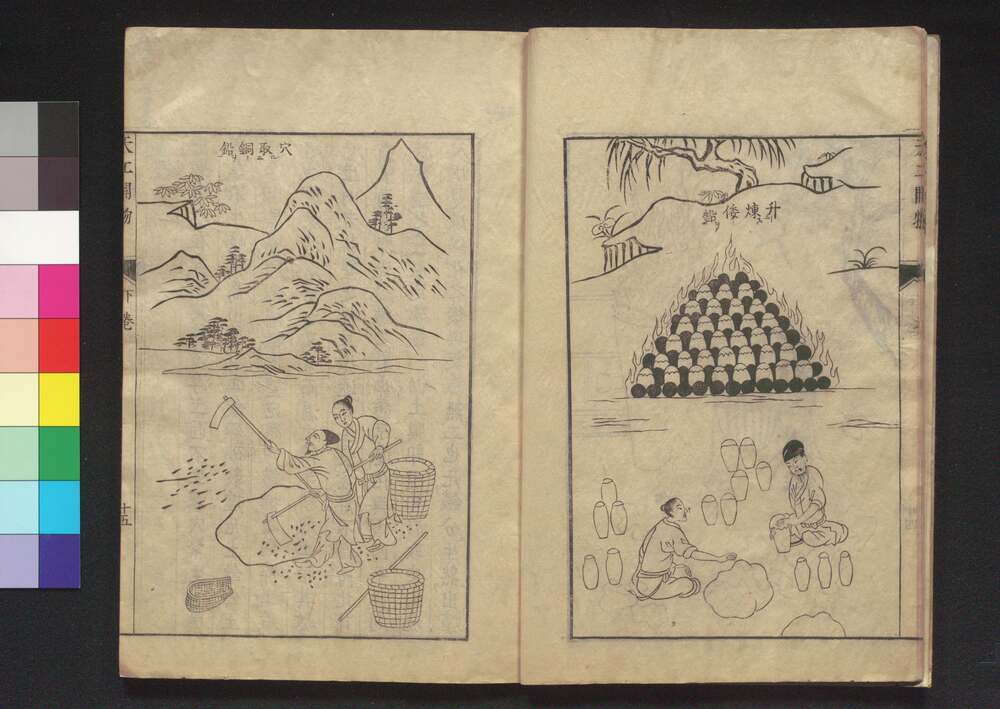 天工開物
升煉倭鉛
穴取銅鉛
天工開物
下卷
十五